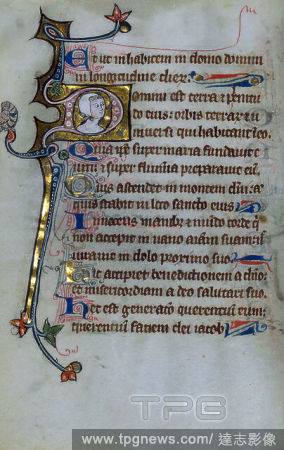 Et ut inhabitem in domo domini
in longitudine dierū.
Domini est terra et plenitu
do eius: orbis terrarū et u
niversi qui habitant in eo.
Quia ip̄e super maria fundavit eū
et super flumina preparavit eū.
Quis ascendet in montem dn̄i: aut
quis stabit in loco sancto eius
Innocens manibus et mundo corde q̄
non accepit in vano aīam suam nec
iuravit in dolo proximo suo
Hic accipiet benedictionem a dn̄o
et misericordiam a deo salutari suo.
Hec est generatio querentium eum:
querentium faciem dei iacob
TPG
www.tpgnews.com/ 達志影像